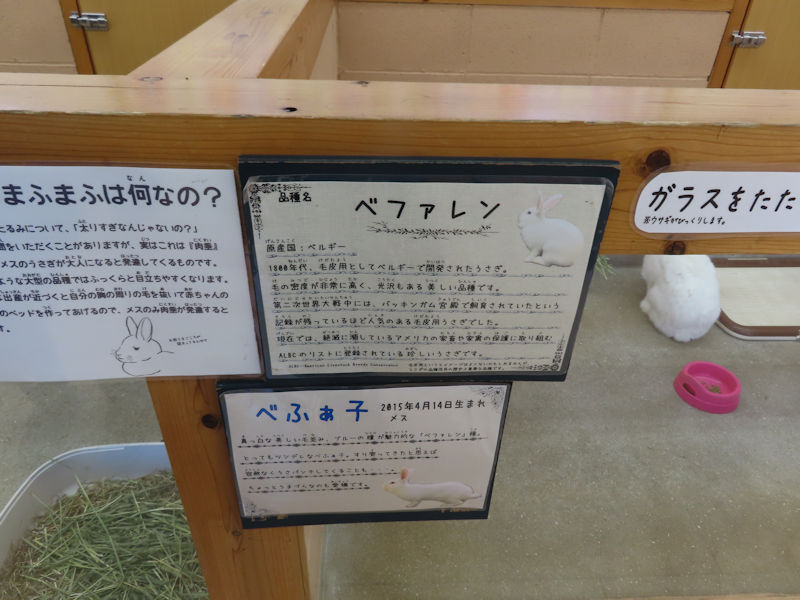 まふまふは何なの？
とるみについて、「太りすぎなんじゃないの？」
をいただくことがありますが、実はこれは『肉垂』
メスのうさぎが大人になると発達してくるものです。
ような大型の品種ではふっくらと目立ちやすくなります。
出産が近づくと自分の胸の周りの毛を抜いて赤ちゃんの
のベッドを作ってあげるので、メスのみ肉垂が発達すると
す。
品種名
ベファレン
原産国：ベルギー
1800年代、毛皮用としてベルギーで開発されたうさぎ。
毛の密度が非常に高く、光沢もある美しい品種です。
第二次世界大戦中には、バッキンガム宮殿で飼育されていたという
記録が残っているほど人気のある毛皮用うさぎでした。
現在では、絶滅に瀕しているアメリカの家畜や家禽の保護に取り組む
ALBCのリストに登録されている珍しいうさぎです。
ALBC=American Livestock Breeds Conservancy
べふぁ子
2015年4月14日生まれ
メス
真っ白な美しい毛並み、ブルーの瞳が魅力的な「ベファレン」種。
とってもツンデレなべふぁ子。すり寄ってきたと思えば
容赦なくうさパンチしてくることも・・・
ちょっとうまづらなのも愛嬌です。
ガラスをたた
※ウサギがびっくりします。